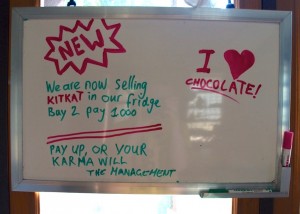 NEW
We are now selling
KITKAT in our fridge
Buy 2 pay 1000
I ♥
CHOCOLATE!
PAY UP, OR YOUR
KARMA WILL
THE MANAGEMENT